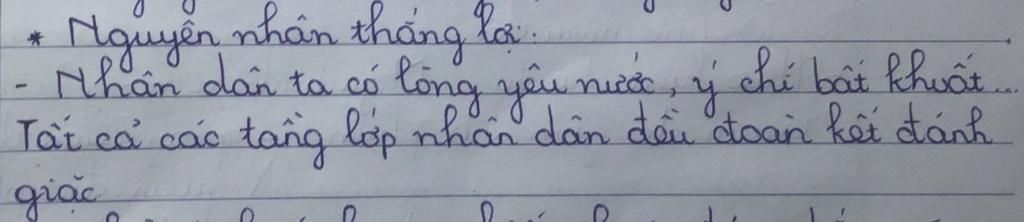 * Nguyên nhân thắng lợi.
- Nhân dân ta có lòng yêu nước, ý chí bất khuất...
Tất cả các tầng lớp nhân dân đều đoàn kết đánh
giặc